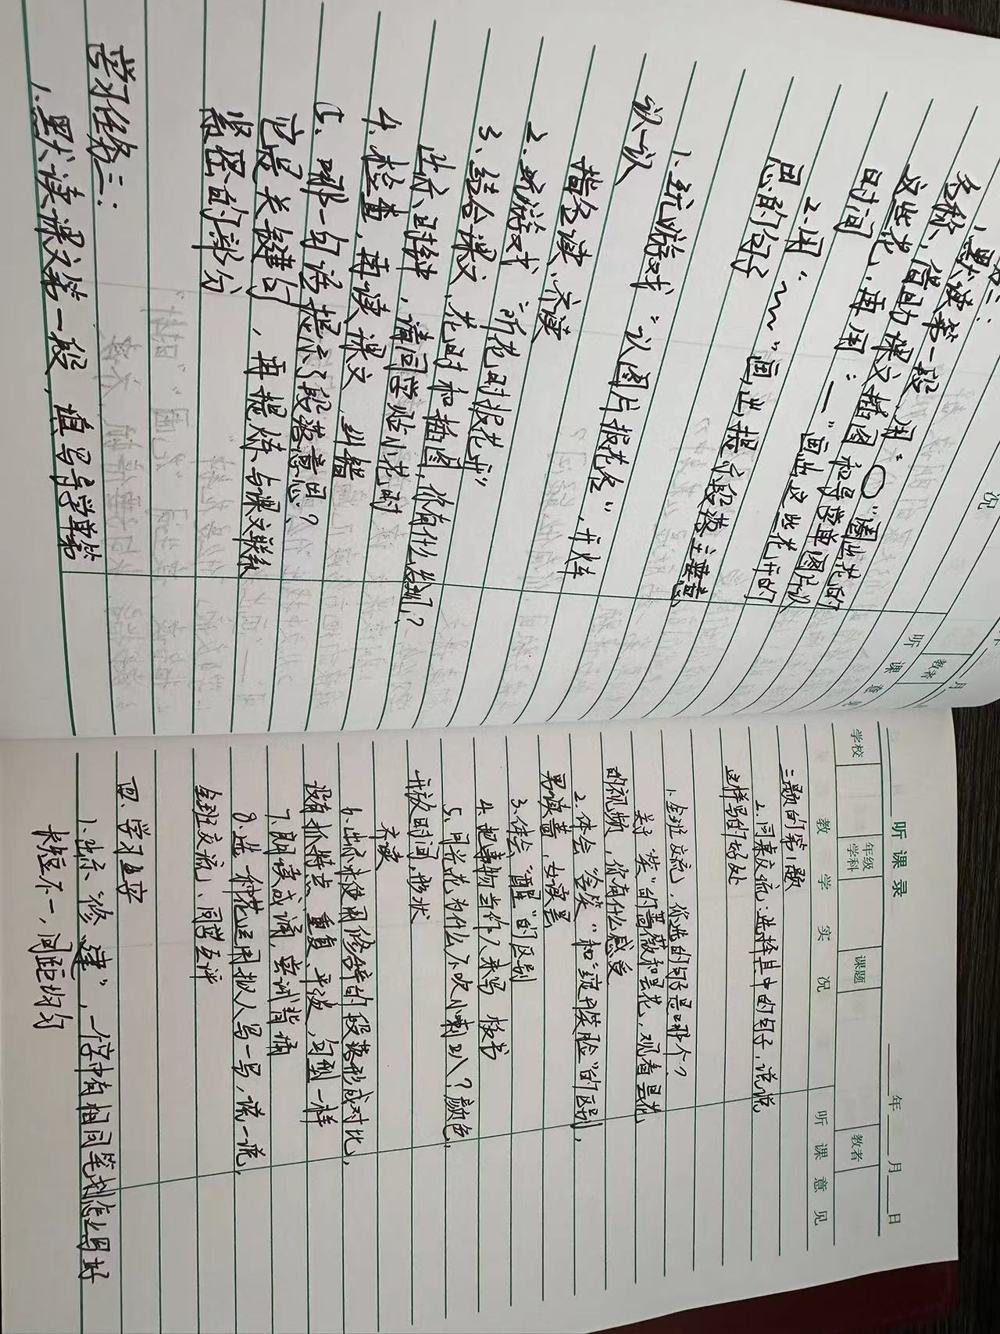 况
听课意
教者
月
1.默读第一段,用"○"圈出花的
名称,借助课文插图和导学单图片认
这些花,再用"—"画出这些花开的
时间
2.用"﹏"画出提示段落主要意
思的句子
认一认
1.玩游戏 "认图片报花名",开火车
指名读,齐读
2.玩游戏 "听花时报花开"
3.结合课文,花时和插图,你有什么发现?
出示时钟,请同学贴小花时
4.检查,再读课文,纠错
5.哪一句话提示了段落意思?
它是关键句,再提炼与课文联系
紧密的部分
学习任务二:
1.默读课文第一段,填写导学单第
听课录
年 月 日
学校
年级
学科
课题
教者
教学实况
听课意见
二题的第1题
2.同桌交流:选择其中的句子,说说
这样写的好处
1.全班交流 你选的句子是哪个?
关于"笑"的蔷薇和昙花,观看昙花
的视频,你有什么感受
2.体会"含笑"和"绽开笑脸"的区别,
男读蔷,女读昙
3.体会"醒"的区别
4.把事物当作人来写 板书
5.问兰花为什么不吹小喇叭?颜色,
开放时间,形状
齐读
6.出示未使用修辞的段落形成对比,
没有抓特点,重复,平淡,句型一样
7.朗读成诵,尝试背诵
8.选一种花运用拟人写一写,说一说,
全班交流,同学互评
四.学习生字
1.出示"修 建",一字中有相同笔划怎么写好
长短不一,间距均匀